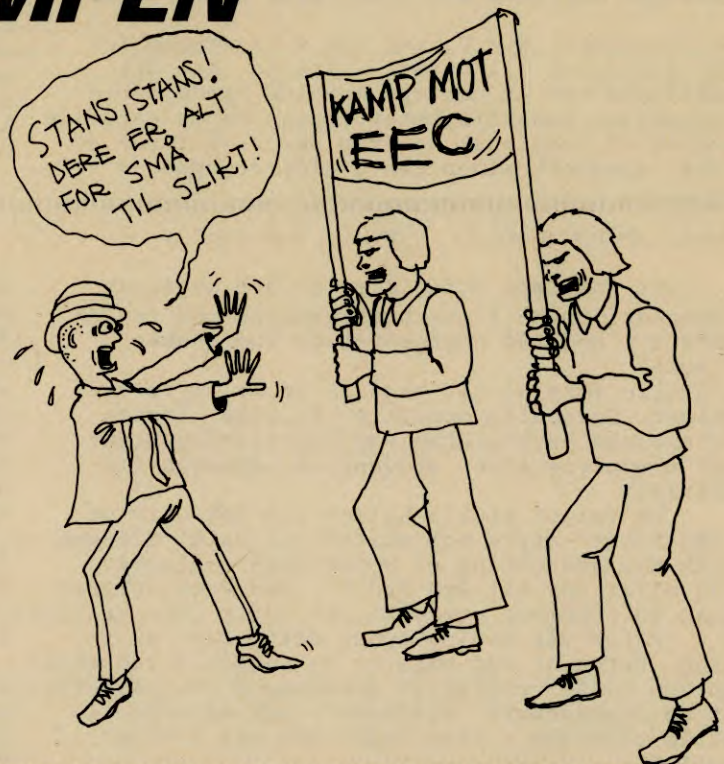 STANS, STANS!
DERE ER ALT
FOR SMÅ
TIL SLIKT!
KAMP MOT
"EEC"